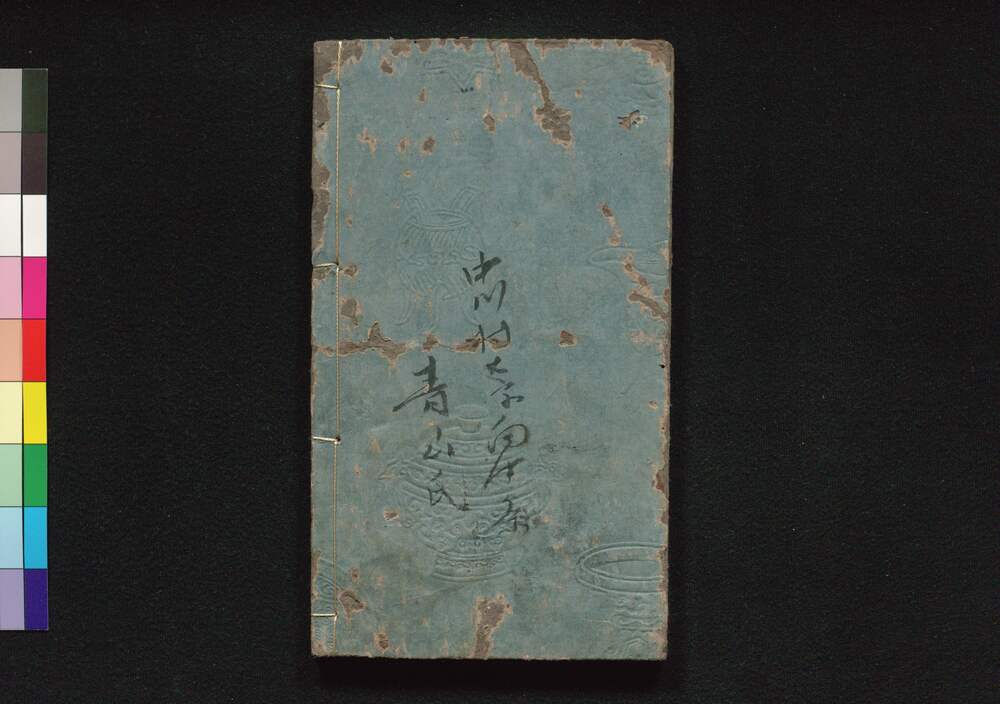 中川村大字向
青山氏